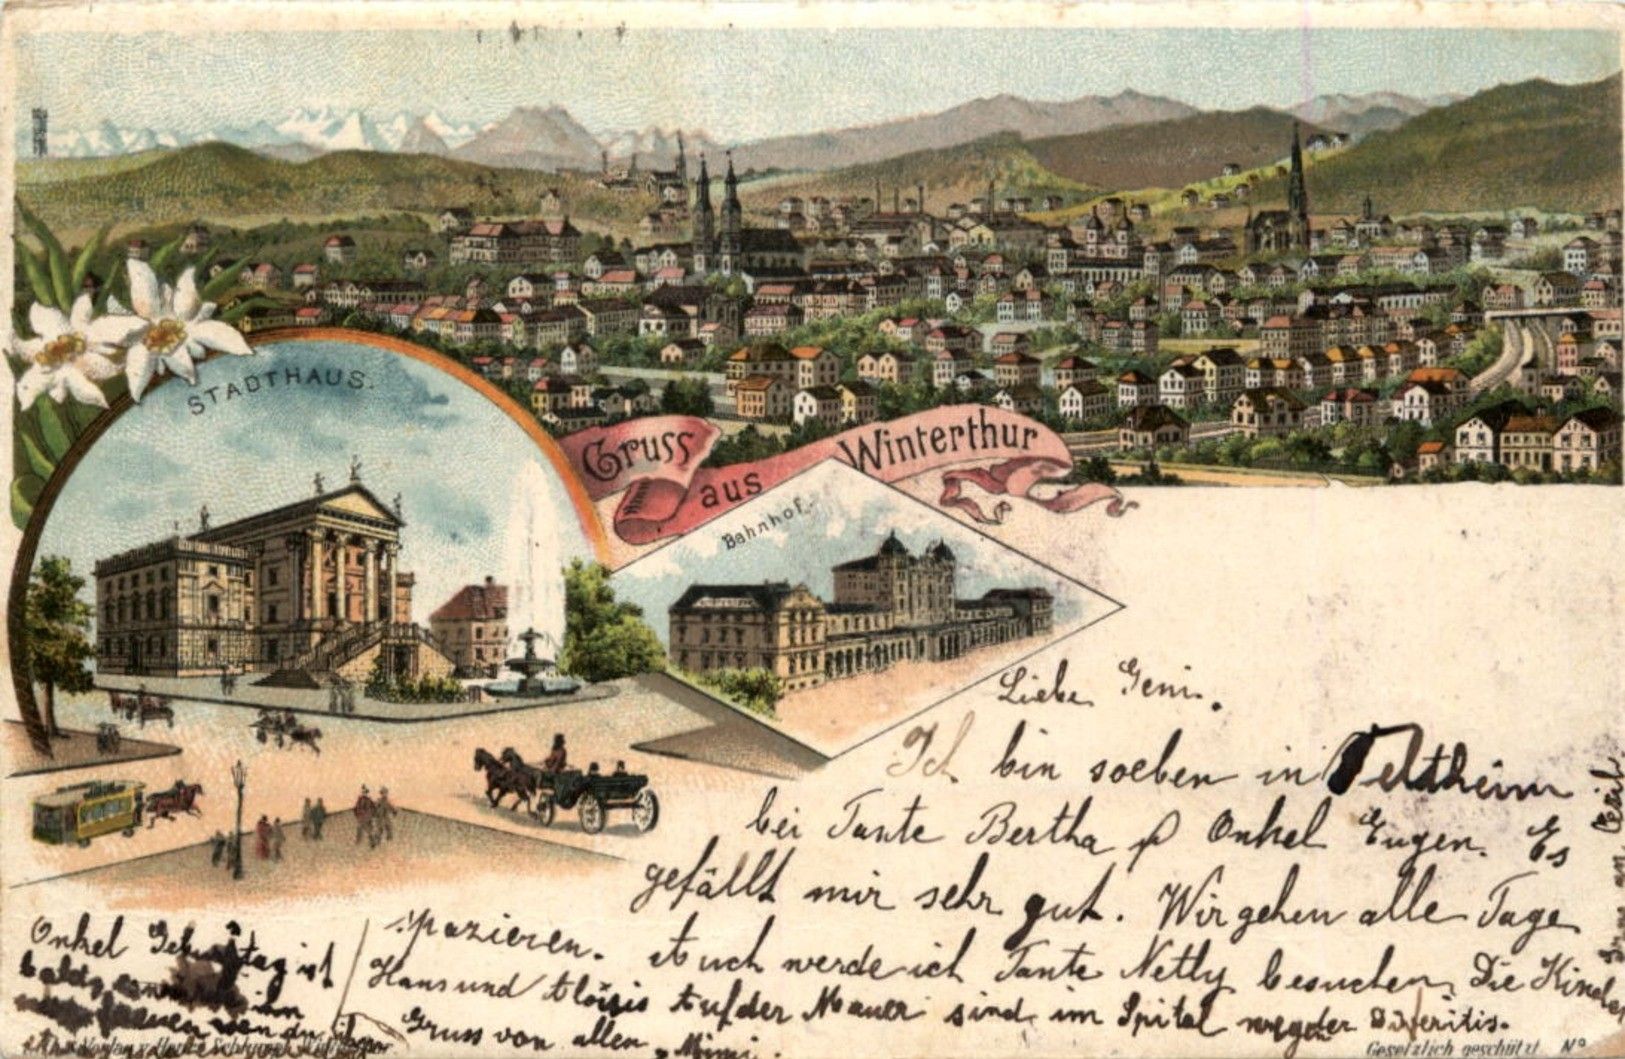 STADTHAUS.
Gruss
aus
Winterthur
Bahnhof.
Liebe Geni.
Ich bin soeben in Veltheim
bei Tante Bertha & Onkel Eugen. Es
gefällt mir sehr gut. Wir gehen alle Tage
spazieren. Auch werde ich Tante Netty besuchen. Die Kinder
Hans und Aloisis Auf der Mauer sind im Spital wegen der Diferitis.
Gruss von allen Mimi.
Onkel Geburtstag ist
bald,
ihm
wen du ihm
Gesetzlich geschützt. No